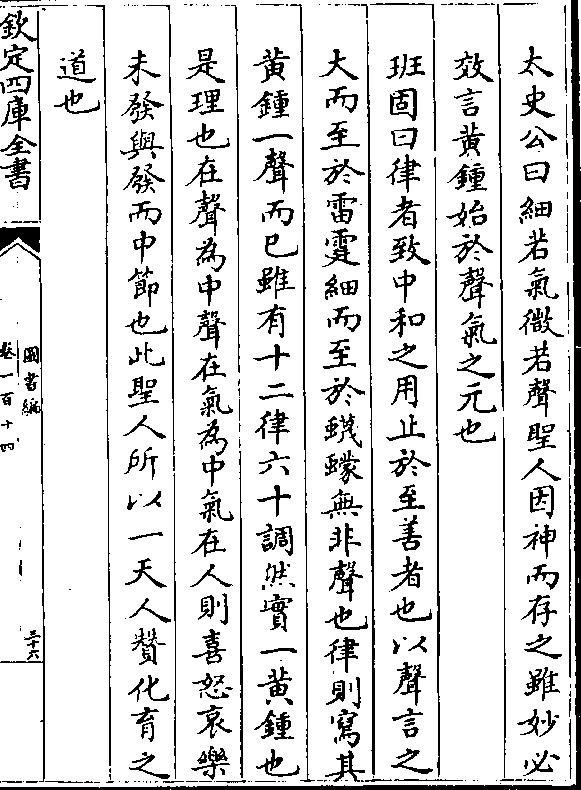 太史公曰細若氣微若聲聖人因神而存之雖妙必
效言黃鍾始於聲氣之元也
班固曰律者致中和之用止於至善者也以聲言之
大而至於雷霆細而至於蠛蠓無非聲也律則寫其
黃鍾一聲而已雖有十二律六十調然實一黃鍾也
是理也在聲為中聲在氣為中氣在人則喜怒哀樂
未發與發而中節也此聖人所以一天人贊化育之
道也
欽定四庫全書
圖書編
卷一百十四
三十六